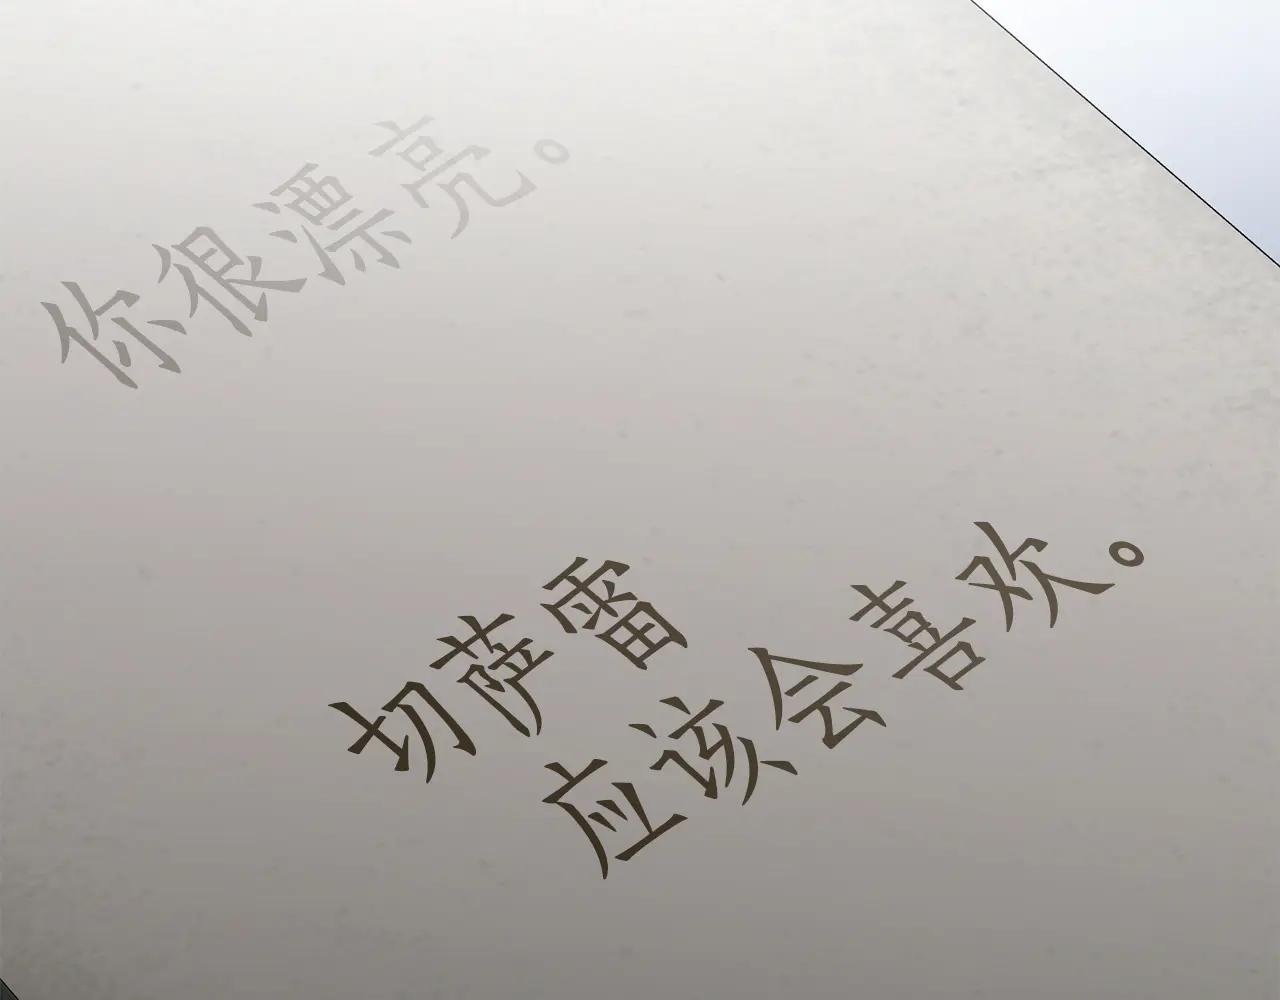 你很漂亮。
切萨雷
应该会喜欢。